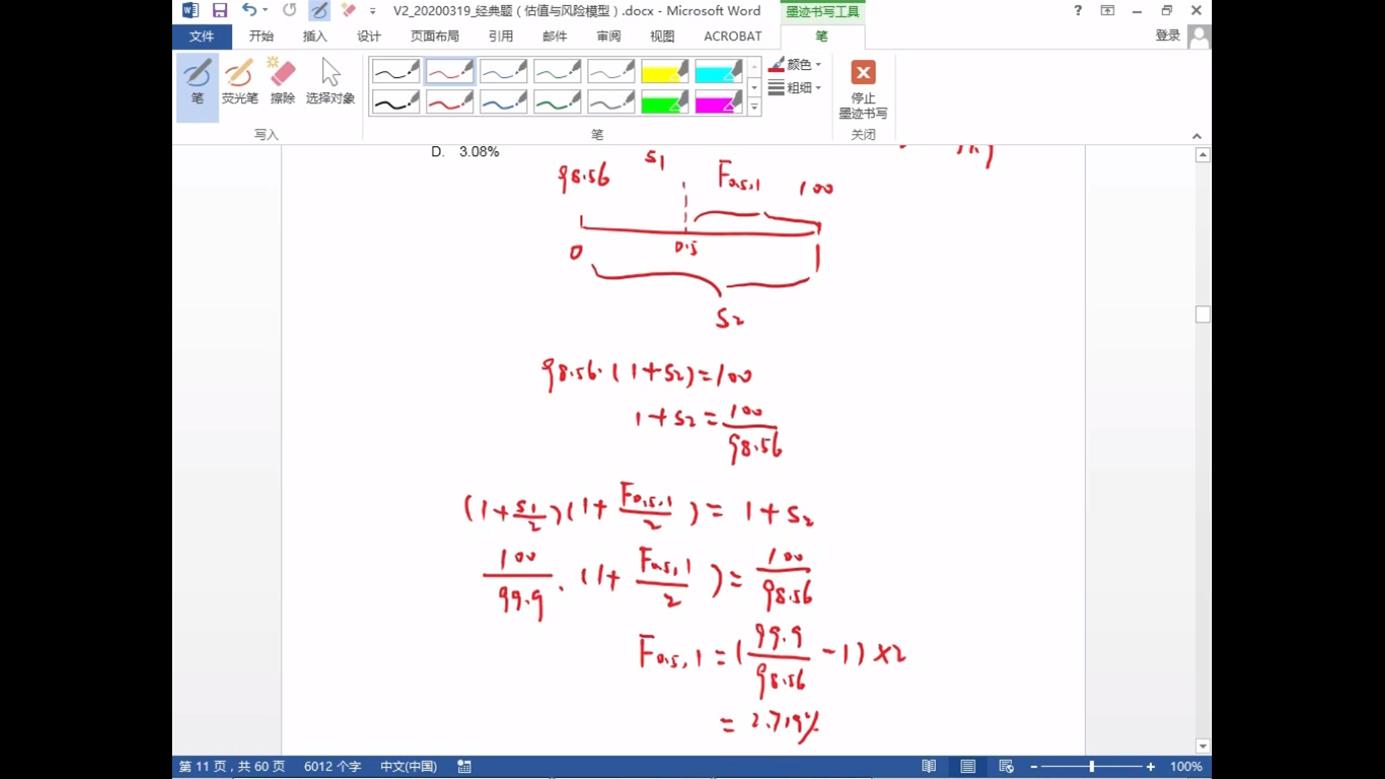 V2_20200319_经典题（估值与风险模型）.docx - Microsoft Word
墨迹书写工具
?
文件 开始 插入 设计 页面布局 引用 邮件 审阅 视图 ACROBAT 笔 登录
笔 荧光笔 擦除 选择对象
颜色
粗细
停止
墨迹书写
写入 笔 关闭
D. 3.08%
98.56 S1 F0.5,1 100
0 0.5 1
S2
98.56·(1+S2)=100
1+S2=100/98.56
(1+S1/2)(1+F0.5,1/2)=1+S2
100/99.9·(1+F0.5,1/2)=100/98.56
F0.5,1=(99.9/98.56-1)×2
=2.719%
第 11 页，共 60 页 6012 个字 中文(中国) 100%